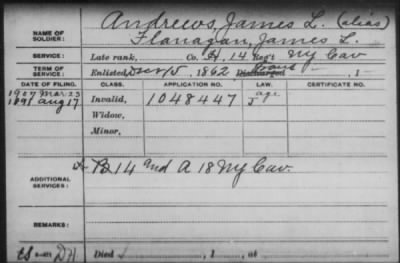 NAME OF SOLDIER: Andrews, James L. (alias)
Flanagan, James L.
SERVICE: Late rank, Co. H, 14 Reg't Ny Cav
TERM OF SERVICE: Enlisted 1862 Discharged , 1
DATE OF FILING. CLASS. APPLICATION NO. LAW. CERTIFICATE NO.
1907 Mar 23 age
1891 Aug 17 Invalid, 1048447 J
Widow,
Minor,
ADDITIONAL SERVICES: B 14 and A 18 Ny Cav.
REMARKS:
Died , 1 , at